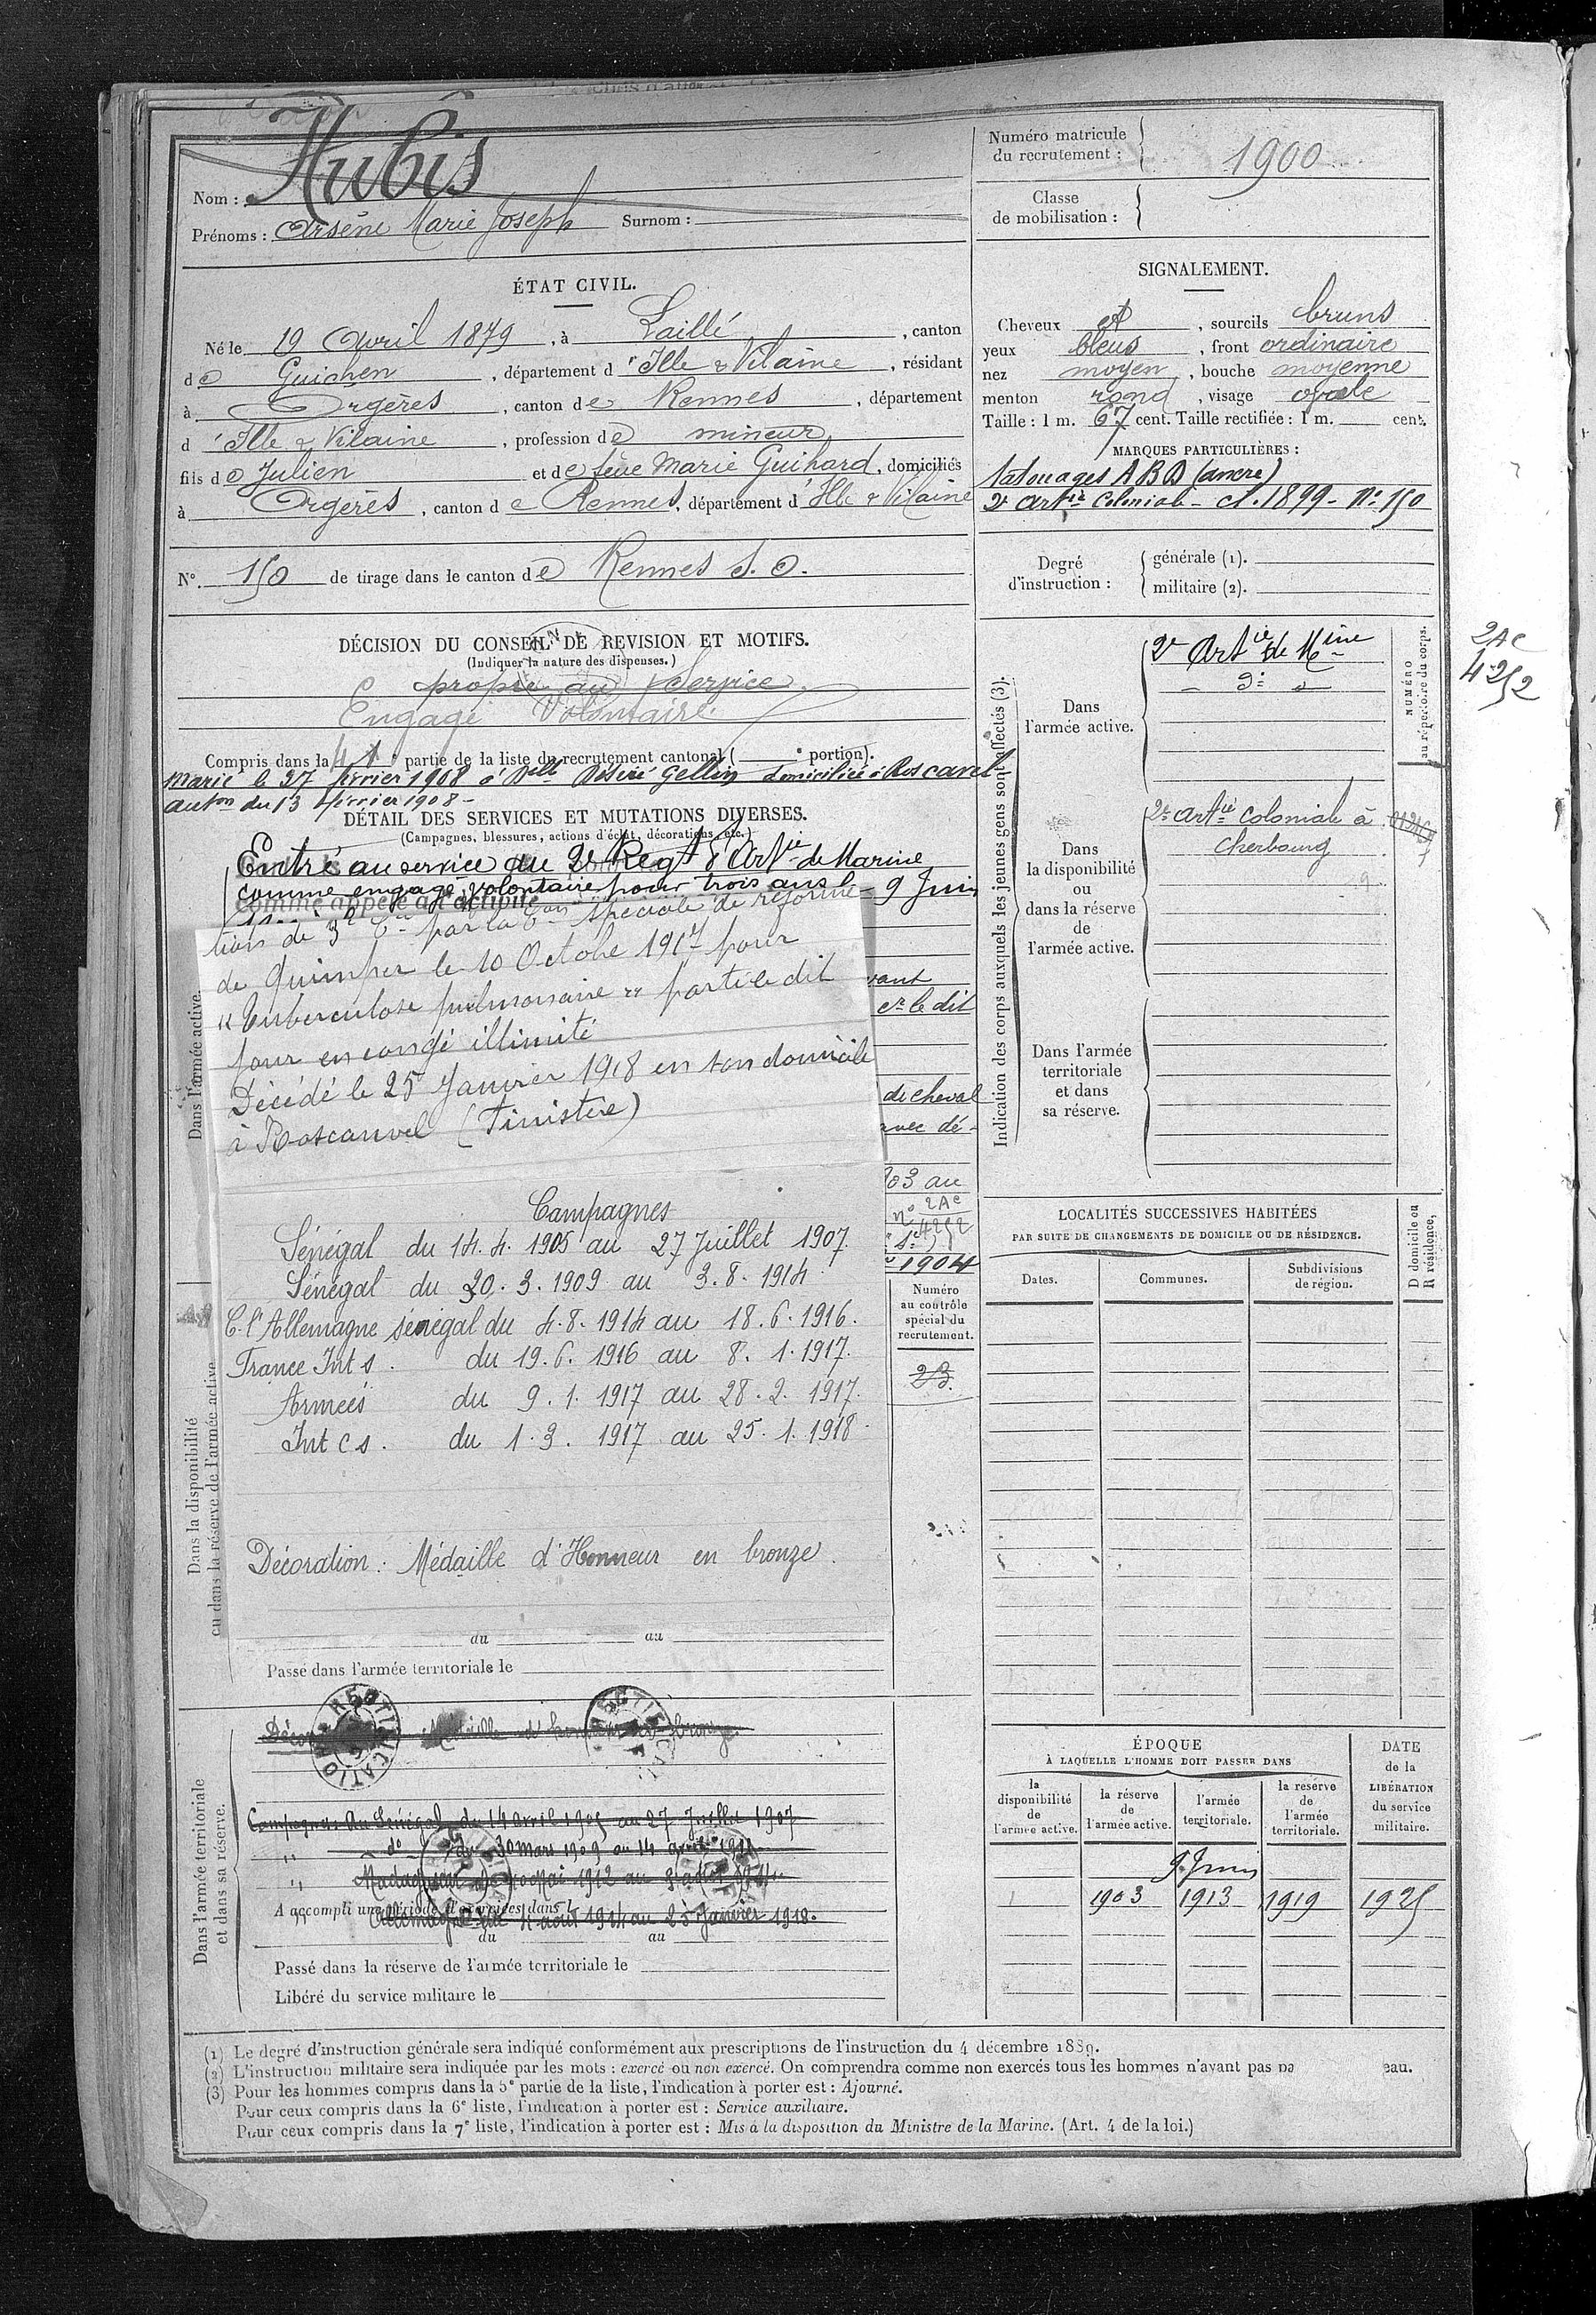 Nom : Aubis
Prénoms : Arsène Marie Joseph Surnom :
Numéro matricule du recrutement : 1900
Classe de mobilisation :
ÉTAT CIVIL.
Né le 19 Avril 1879, à Laillé, canton
de Guichen, département d'Ille & Vilaine, résidant
à Orgères, canton de Rennes, département
d'Ille & Vilaine, profession de mineur
fils de Julien et de feue Marie Guihard, domiciliés
à Orgères, canton de Rennes, département d'Ille & Vilaine
N° 150 de tirage dans le canton de Rennes S. O.
SIGNALEMENT.
Cheveux et, sourcils bruns
yeux bleus, front ordinaire
nez moyen, bouche moyenne
menton rond, visage ovale
Taille : 1 m. 67 cent. Taille rectifiée : 1 m. cent.
MARQUES PARTICULIÈRES :
tatouages A B D (ancre)
2e Artie Coloniale - cl. 1899 - N° 150
Degré d'instruction :
générale (1).
militaire (2).
DÉCISION DU CONSEIL DE REVISION ET MOTIFS.
(Indiquer la nature des dispenses.)
propre au Service
Engagé Volontaire
Compris dans la partie de la liste du recrutement cantonal ( portion).
Marié le 27 février 1908 à Delle Désiré Gellin domiciliée à Roscavel
auton du 13 février 1908 -
DÉTAIL DES SERVICES ET MUTATIONS DIVERSES.
(Campagnes, blessures, actions d'éclat, décorations, etc.)
Entré au service au 2e Régt d'Artie de Marine
comme engagé volontaire pour trois ans le 9 Juin
comme appelé à l'activité
tion de 3e Cie par la Con spéciale de réforme
de Quimper le 10 Octobre 1917 pour
"tuberculose pulmonaire" parti le dit
jour en congé illimité
Décédé le 25 Janvier 1918 en son domicile
à Roscanvel (Finistère)
vant
le dit
de cheval
avec dé-
03 au
n° 2Ac
4252
1904
Campagnes
Sénégal du 14. 4. 1905 au 27 Juillet 1907.
Sénégal du 30. 3. 1909 au 3. 8. 1914
C. l'Allemagne sénégal du 4. 8. 1914 au 18. 6. 1916.
France Int s. du 19. 6. 1916 au 8. 1. 1917.
Armées du 9. 1. 1917 au 28. 2. 1917.
Int c s. du 1. 3. 1917 au 25. 1. 1918
Décoration : Médaille d'Honneur en bronze.
du au
Passé dans l'armée territoriale le
Numéro au contrôle spécial du recrutement.
23.
Dans l'armée active.
Dans la disponibilité ou dans la réserve de l'armée active
Dans l'armée territoriale et dans sa réserve.
RECTIFICATION
Médaille d'honneur en bronze.
Campagnes Au Sénégal du 14 avril 1905 au 27 Juillet 1907
" d° du 30 mars 1909 au 14 avril 1911
" Madagascar du 10 Mai 1912 au 3 août 1914
A accompli une période d'exercices dans l
Allemagne du 4 août 1914 au 25 Janvier 1918.
du au
Passé dans la réserve de l'armée territoriale le
Libéré du service militaire le
Indication des corps auxquels les jeunes gens sont affectés (3).
Dans l'armée active.
2e Artie de Mine
NUMÉRO au répertoire du corps.
2Ac
4252
Dans la disponibilité ou dans la réserve de l'armée active.
2e Artie coloniale à
Cherbourg
Dans l'armée territoriale et dans sa réserve.
LOCALITÉS SUCCESSIVES HABITÉES
PAR SUITE DE CHANGEMENTS DE DOMICILE OU DE RÉSIDENCE.
Dates. Communes. Subdivisions de région. D domicile ou R résidence,
ÉPOQUE
À LAQUELLE L'HOMME DOIT PASSER DANS
la disponibilité de l'armée active.
la réserve de l'armée active.
l'armée territoriale.
la réserve de l'armée territoriale.
DATE de la LIBÉRATION du service militaire.
9 Juin
1903 1913 1919 1925
(1) Le degré d'instruction générale sera indiqué conformément aux prescriptions de l'instruction du 4 décembre 1889.
(2) L'instruction militaire sera indiquée par les mots : exercé ou non exercé. On comprendra comme non exercés tous les hommes n'ayant pas pa eau.
(3) Pour les hommes compris dans la 5e partie de la liste, l'indication à porter est : Ajourné.
Pour ceux compris dans la 6e liste, l'indication à porter est : Service auxiliaire.
Pour ceux compris dans la 7e liste, l'indication à porter est : Mis à la disposition du Ministre de la Marine. (Art. 4 de la loi.)